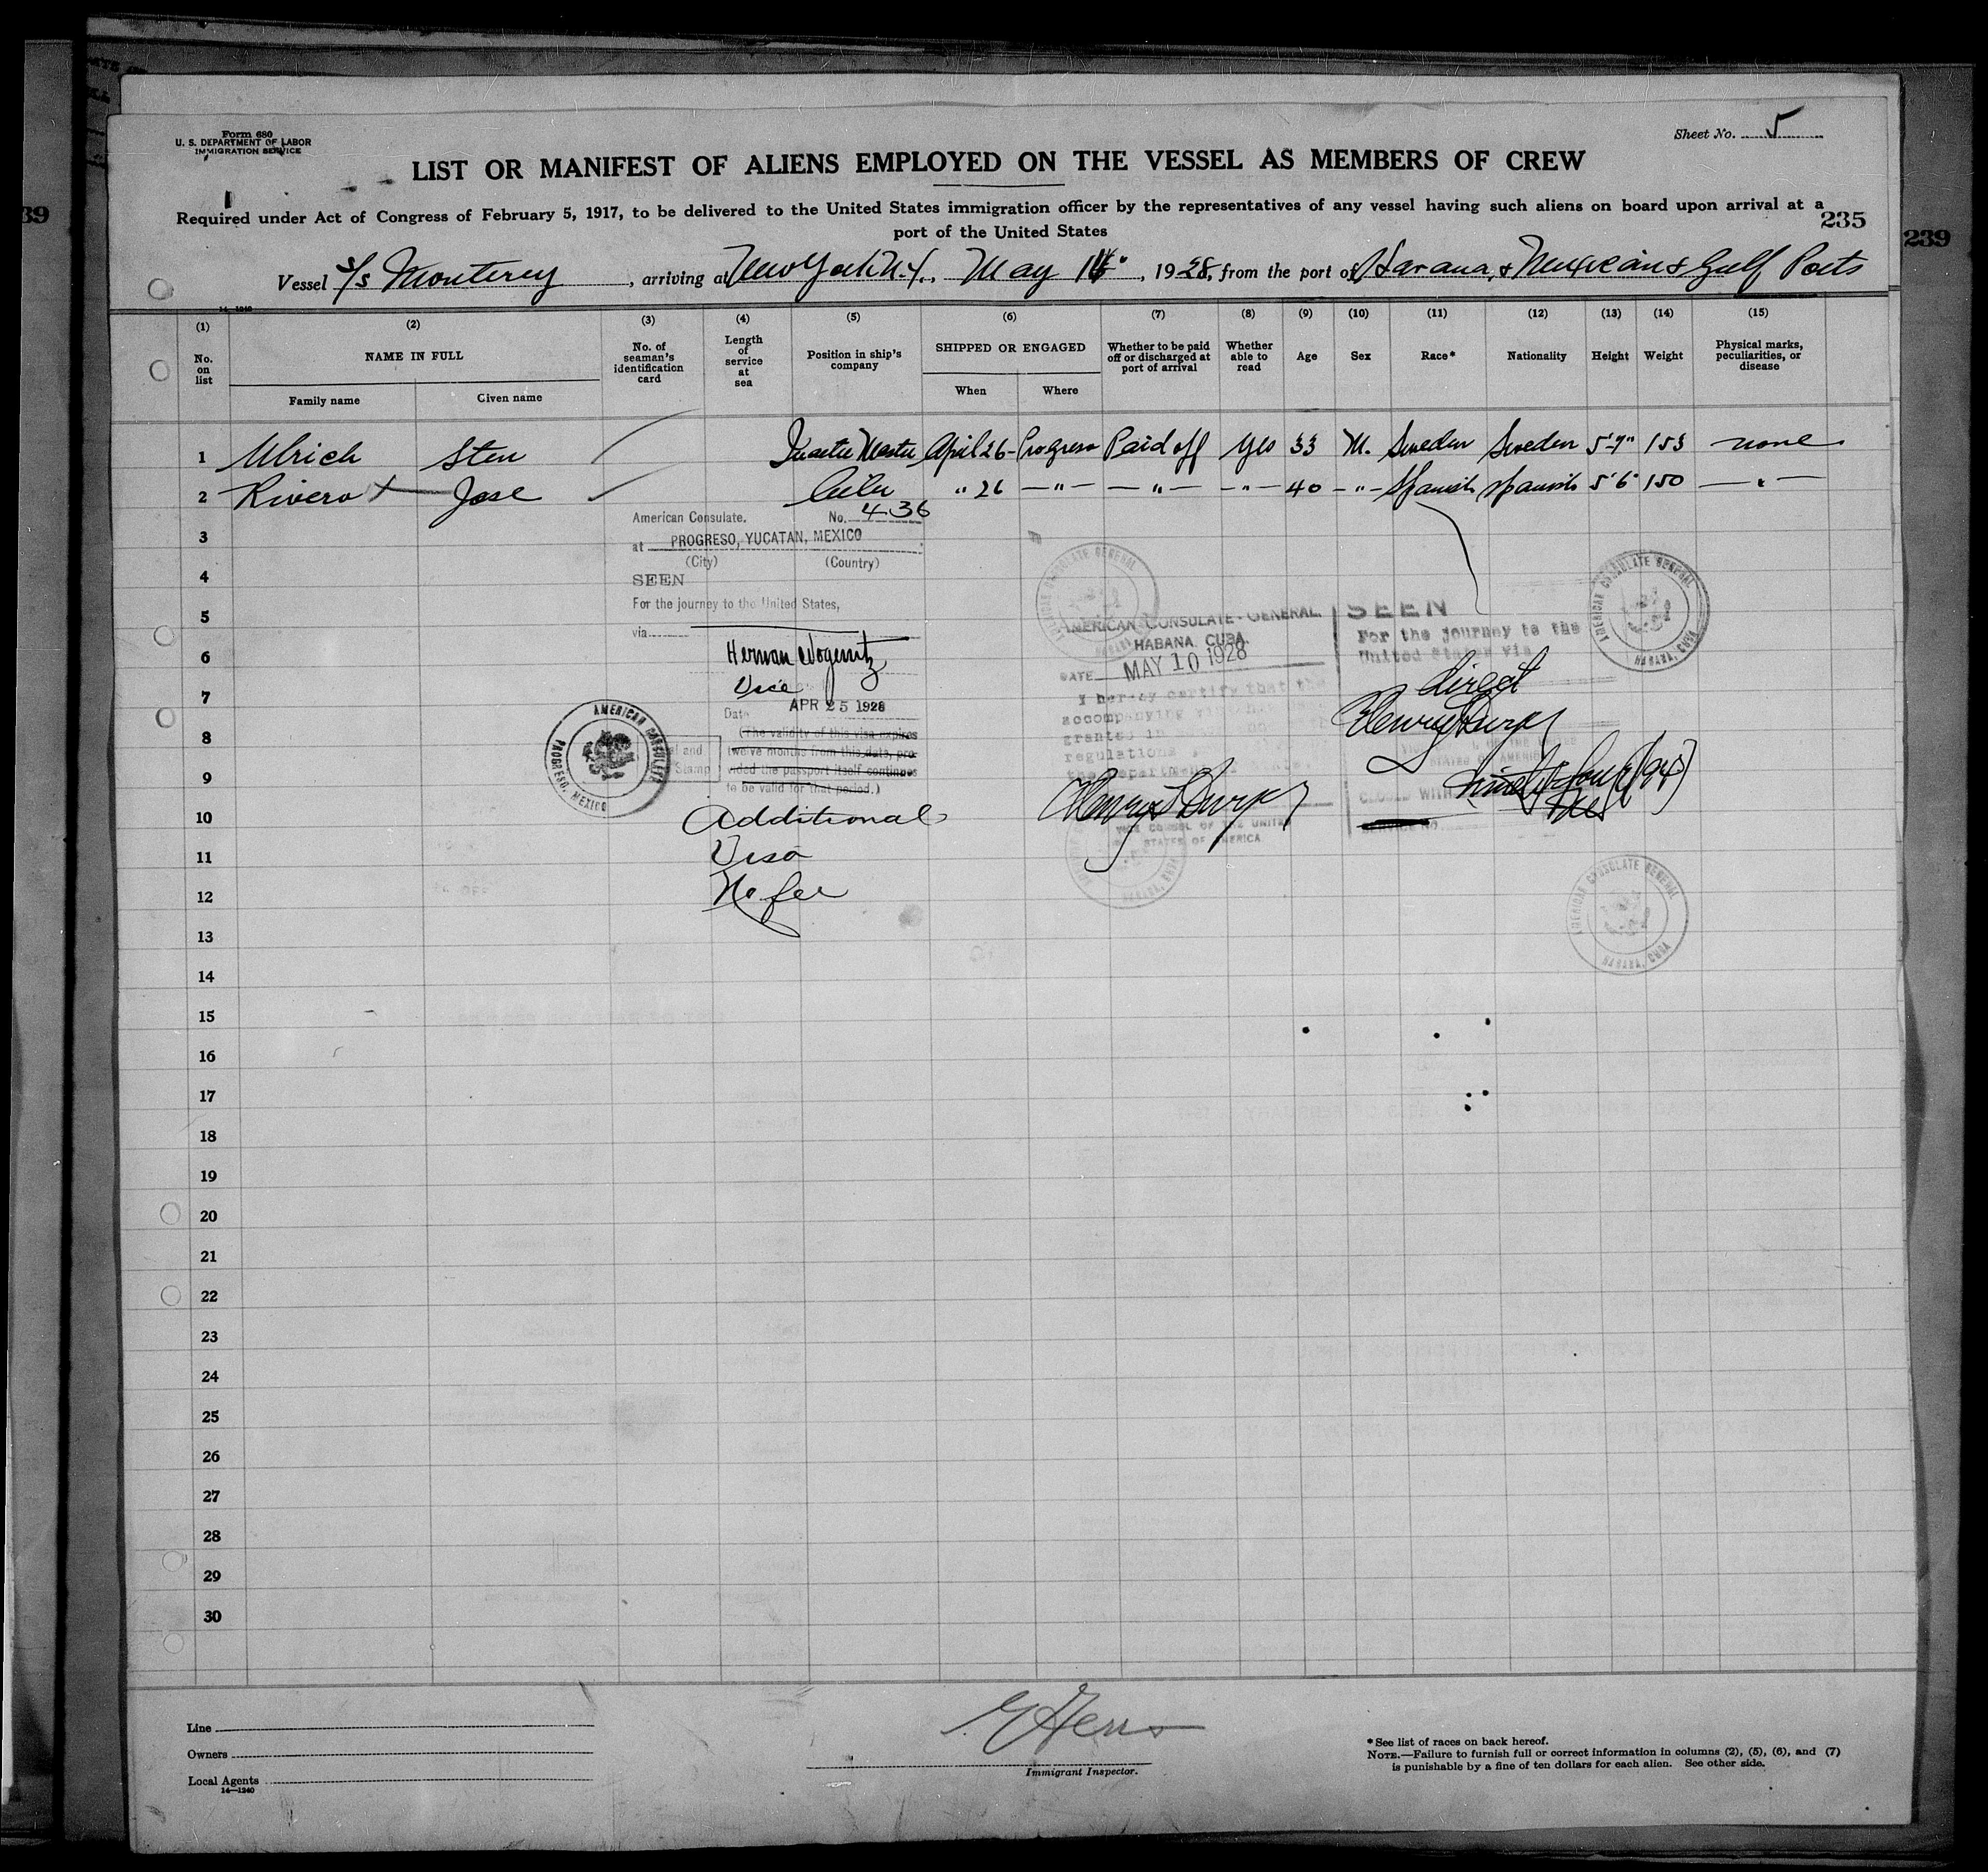 Form 680
U. S. DEPARTMENT OF LABOR
IMMIGRATION SERVICE
Sheet No. 5
LIST OR MANIFEST OF ALIENS EMPLOYED ON THE VESSEL AS MEMBERS OF CREW
Required under Act of Congress of February 5, 1917, to be delivered to the United States immigration officer by the representatives of any vessel having such aliens on board upon arrival at a
port of the United States
235
239
39
Vessel S/s Monterey, arriving at New York N.Y., May, 1928, from the port of Havana, & Mexican & Gulf Ports
14-1240
(1) (2) (3) (4) (5) (6) (7) (8) (9) (10) (11) (12) (13) (14) (15)
No. on list
NAME IN FULL
Family name
Given name
No. of seaman's identification card
Length of service at sea
Position in ship's company
SHIPPED OR ENGAGED
When
Where
Whether to be paid off or discharged at port of arrival
Whether able to read
Age
Sex
Race*
Nationality
Height
Weight
Physical marks, peculiarities, or disease
1 Ulrich Sten Quarter Master April 26 - Progreso Paid off Yes 33 M. Sweden Sweden 5'-7" 153 none
2 Rivero Jose " 26 — " — — " — - " - 40 - " - Spanish Spanish 5'6" 150 — " —
3
4
5
6
7
8
9
10
11
12
13
14
15
16
17
18
19
20
21
22
23
24
25
26
27
28
29
30
American Consulate. No. 436
at PROGRESO, YUCATAN, MEXICO
(City) (Country)
SEEN
For the journey to the United States,
via
Herman
Vice
Date APR 25 1928
(The validity of this visa expires
twelve months from this date, pro-
vided the passport itself continues
to be valid for that period.)
AMERICAN CONSULATE
PROGRESO, MEXICO
Additional
Visa
No fee
AMERICAN CONSULATE GENERAL
HABANA, CUBA
AMERICAN CONSULATE-GENERAL.
HABANA, CUBA.
DATE MAY 10 1928
I hereby certify that the
accompanying
regulations
VICE CONSUL OF THE UNITED
STATES OF AMERICA
SEEN
For the journey to the
United States via
direct
ninety four (94)
AMERICAN CONSULATE GENERAL
HABANA, CUBA
AMERICAN CONSULATE GENERAL
HABANA, CUBA
Line
Owners
Local Agents
14—1240
Immigrant Inspector.
* See list of races on back hereof.
NOTE.—Failure to furnish full or correct information in columns (2), (5), (6), and (7)
is punishable by a fine of ten dollars for each alien. See other side.